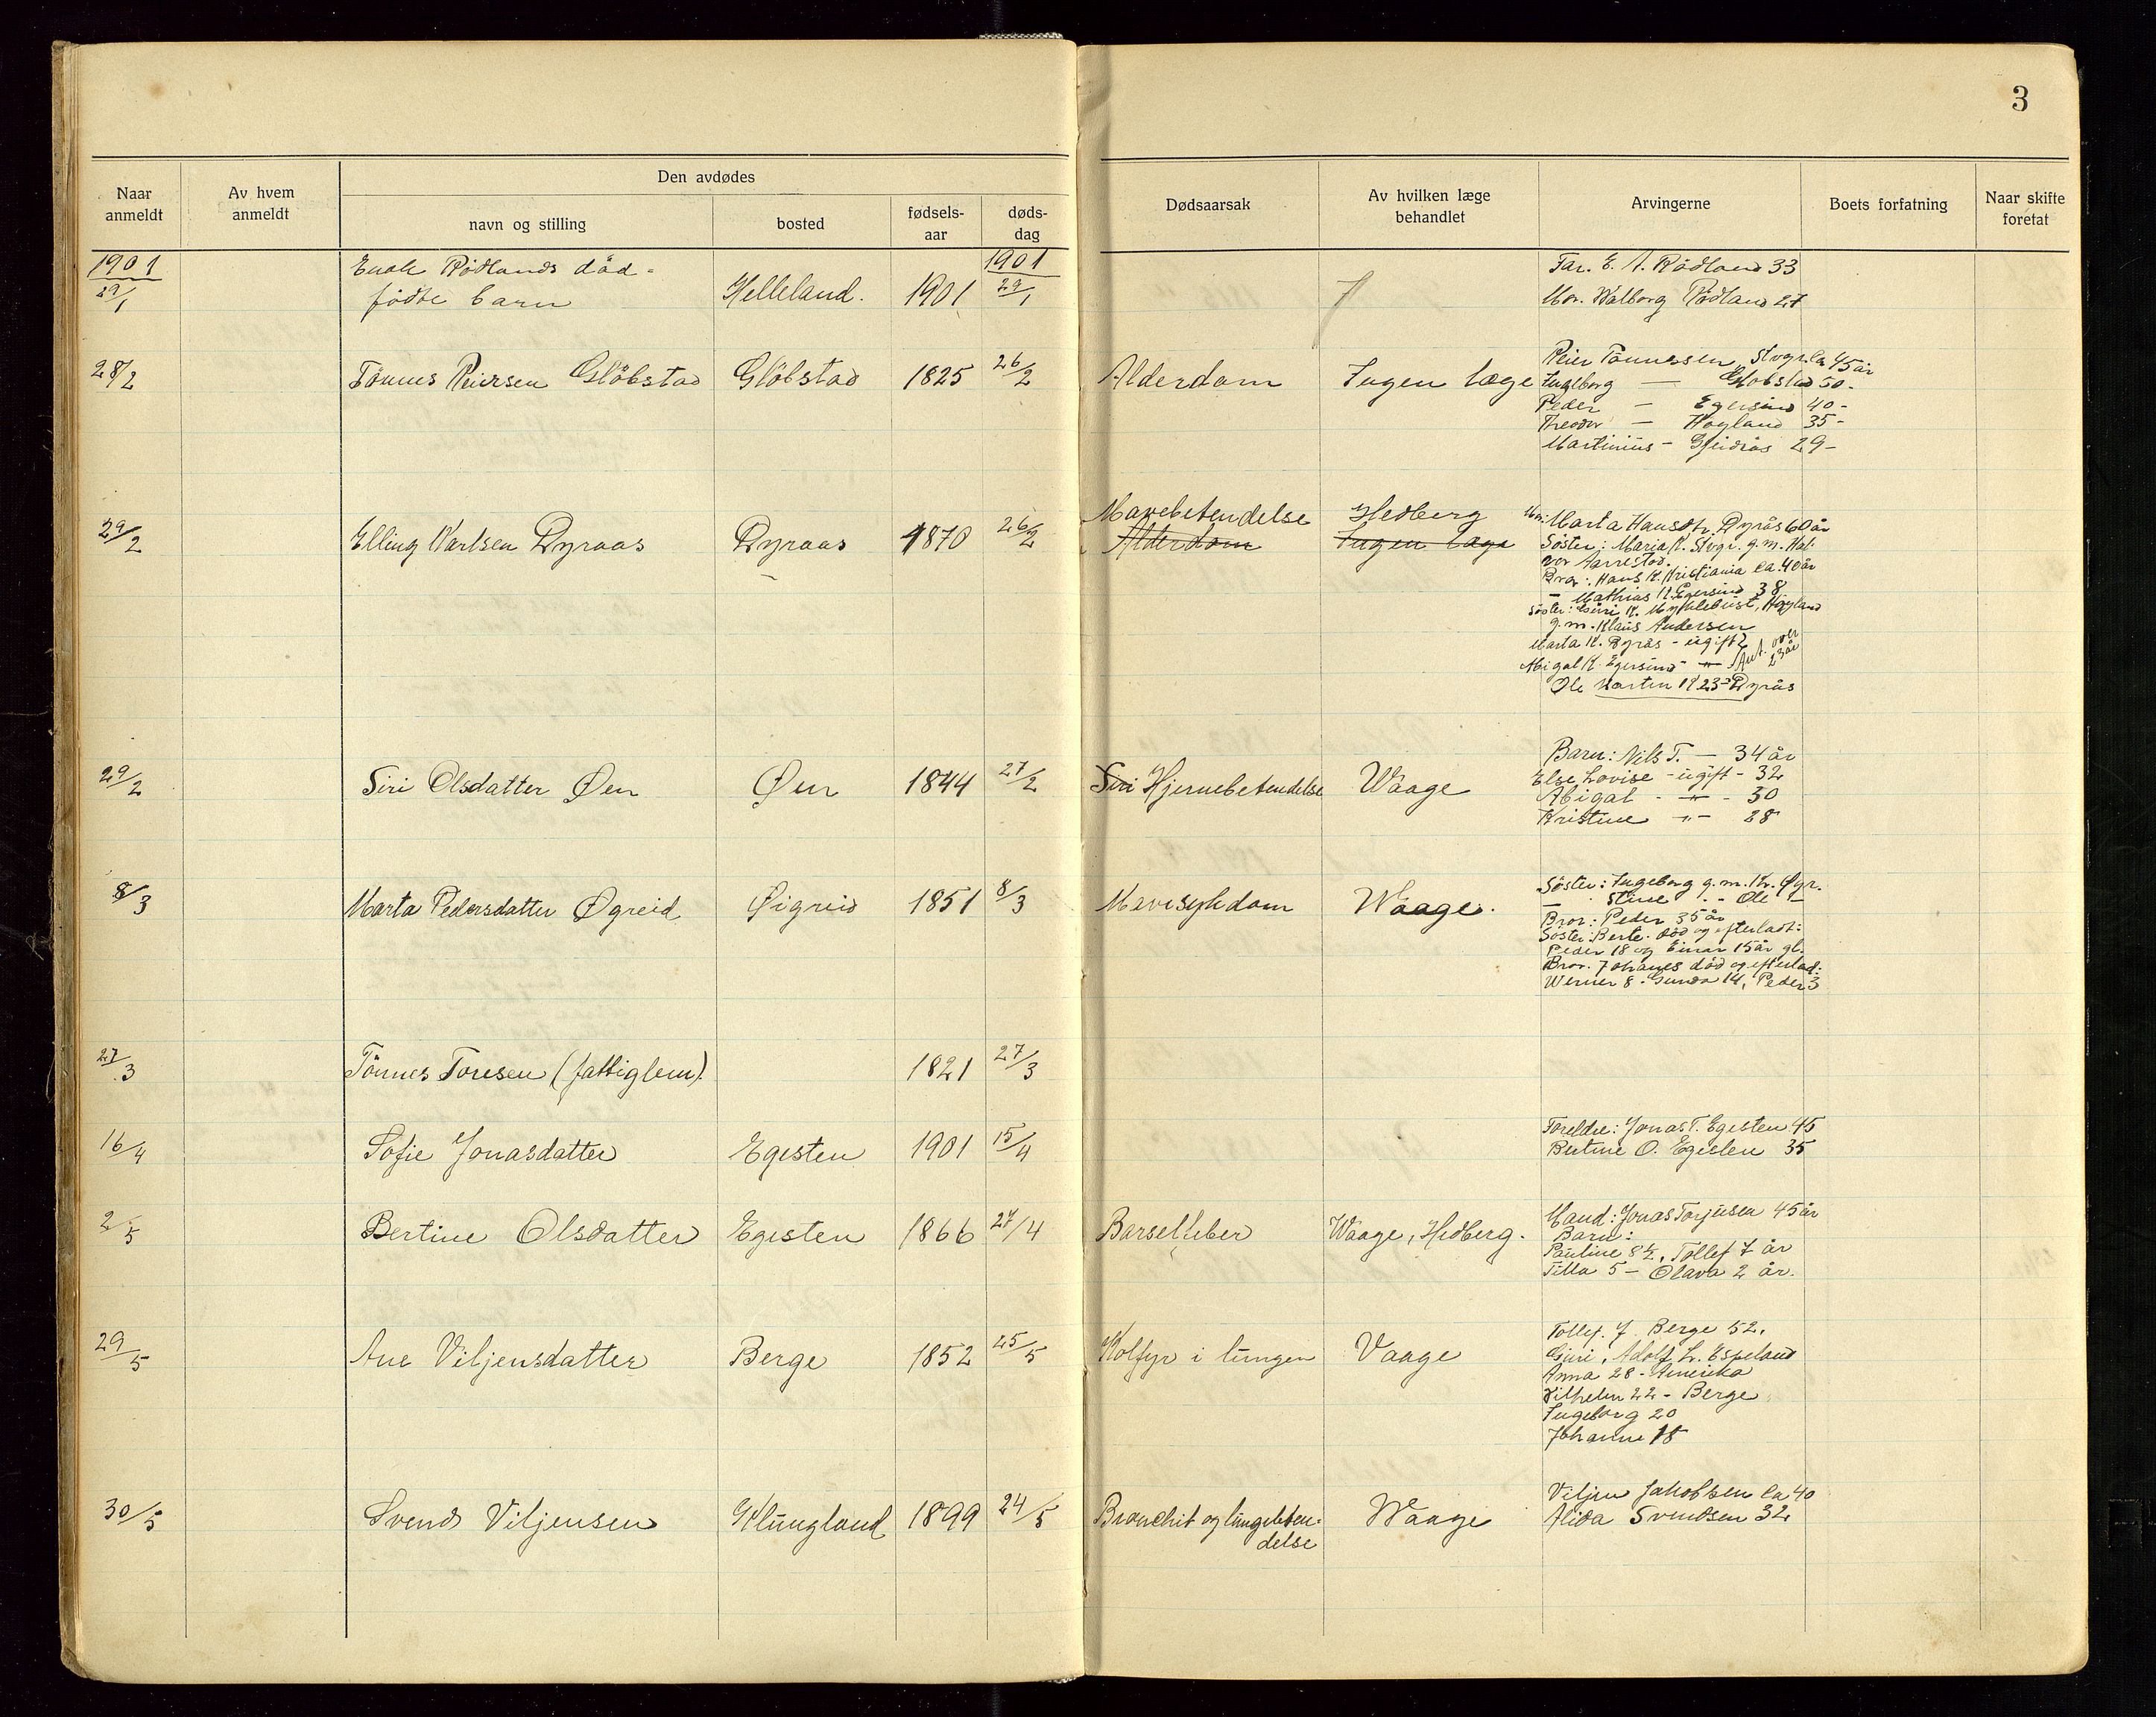 3
Naar anmeldt
Av hvem anmeldt
Den avdødes
navn og stilling
bosted
fødsels-aar
døds-dag
Dødsaarsak
Av hvilken læge behandlet
Arvingerne
Boets forfatning
Naar skifte foretat
1901
29/1
Enok Rödlands död-
födte barn
Helleland.
1901
1901
29/1
Far. E. A. Rödland 33
Mor. Walborg Rödland 27
28/2
Tönnes Peiersen Glöbstad
Glöbstad
1825
26/2
Alderdom
Ingen læge
Peier Tönnessen Stvgr. ca 45 år
Ingeborg — Glöbstad 50-
Peder — Egersund 40-
Theodor — Høyland 35-
Martinius - 29-
29/2
Elling Karlsen Dyraas
Dyraas
1870
26/2
Mavebetendelse
Alderdom
Hedberg
Ingen læge
Mor: Marta Hansdtr. Dyrås 60 år
Söster: Maria K. Stvgr. g.m. Hal-
vor Aarrestad.
Bror: Hans K. Kristiania ca. 40 år
— Mathias K. Egersund 38
Söster: Siri K. Myklebust, Høyland
g.m. Klaus Andersen
Marta K. Dyrås - ugift
Abigal K. Egersund - " - Ant. over 23 år
Ole Martin K 23 - Dyrås
29/2
Siri Olsdatter Øen
Øen
1844
27/2
Siri Hjernebetendelse
Waage
Barn: Nils T. — 34 år
Else Lovise - ugift - 32
Abigal - " - 30
Kristine - " - 28
8/3
Marta Pedersdatter Øgreid
Øigreid
1851
8/3
Mavesykdom
Waage.
Söster: Ingeborg g.m. Kr. Øgr.
— Stine - - Ole —
Bror: Peder 35 år
Söster: Berte. död og efterladt:
Peder 18 og Einar 15 år gl.
Bror. Johanes död og efterlad:
Werner 8. Gunda 14, Peder 3
27/3
Tönnes Toresen (fattiglem).
1821
27/3
16/4
Sofie Jonasdatter
Egesten
1901
15/4
Foreldre: Jonas T. Egesten 45
Bertine O. Egesten 35
2/5
Bertine Olsdatter
Egesten
1866
27/4
Barselfeber
Waage, Hedberg.
Mand: Jonas Torjusen 45 år
Barn:
Pauline 8½, Tollef 7 år
Tilla 5 — Olava 2 år.
29/5
Ane Viljensdatter
Berge
1852
25/5
Kolfyr i lungen
Vaage
Tollef. J. Berge 52.
Guri, Adolf L. Espeland
Anna 28 - Amerika
Vilhelm 22 - Berge
Ingeborg 20
Johanne 18
30/5
Svend Viljensen
Klungland
1899
24/5
Bronchit og lungebeten-
delse
Waage
Viljen Jakobsen ca 40
Alida Svendsen 32